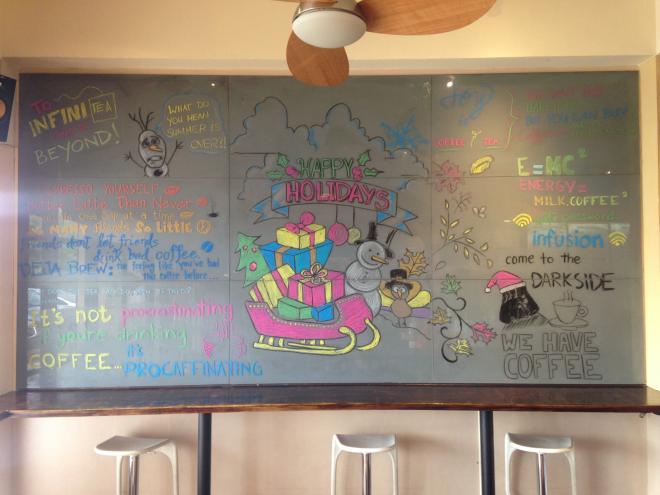 TO
INFINI TEA
AND
BEYOND!
WHAT DO
YOU MEAN
SUMMER IS
OVER?!
ESPRESSO YOURSELF
Better Latte Than Never
One Sip at a time
SO MANY Blends So LiTTLe
Friends don't let friends
drink bad coffee.
DEJA BREW: The feeling like you've had
this coffee before...
It's not procrastinating
if you're drinking
COFFEE... it's
PROCAFFINATING
HAPPY
HOLIDAYS
COFFEE TEA
BUT YOU CAN BUY
E=MC²
ENERGY =
MILK.COFFEE²
wifi password
infusion
come to the
DARKSIDE
WE HAVE
COFFEE